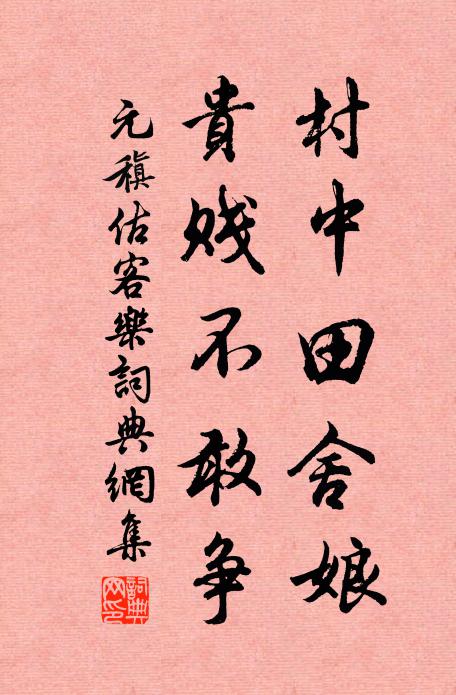 村中田舍娘
貴賤不敢争
元稹估客樂詞典網集
詞典網印